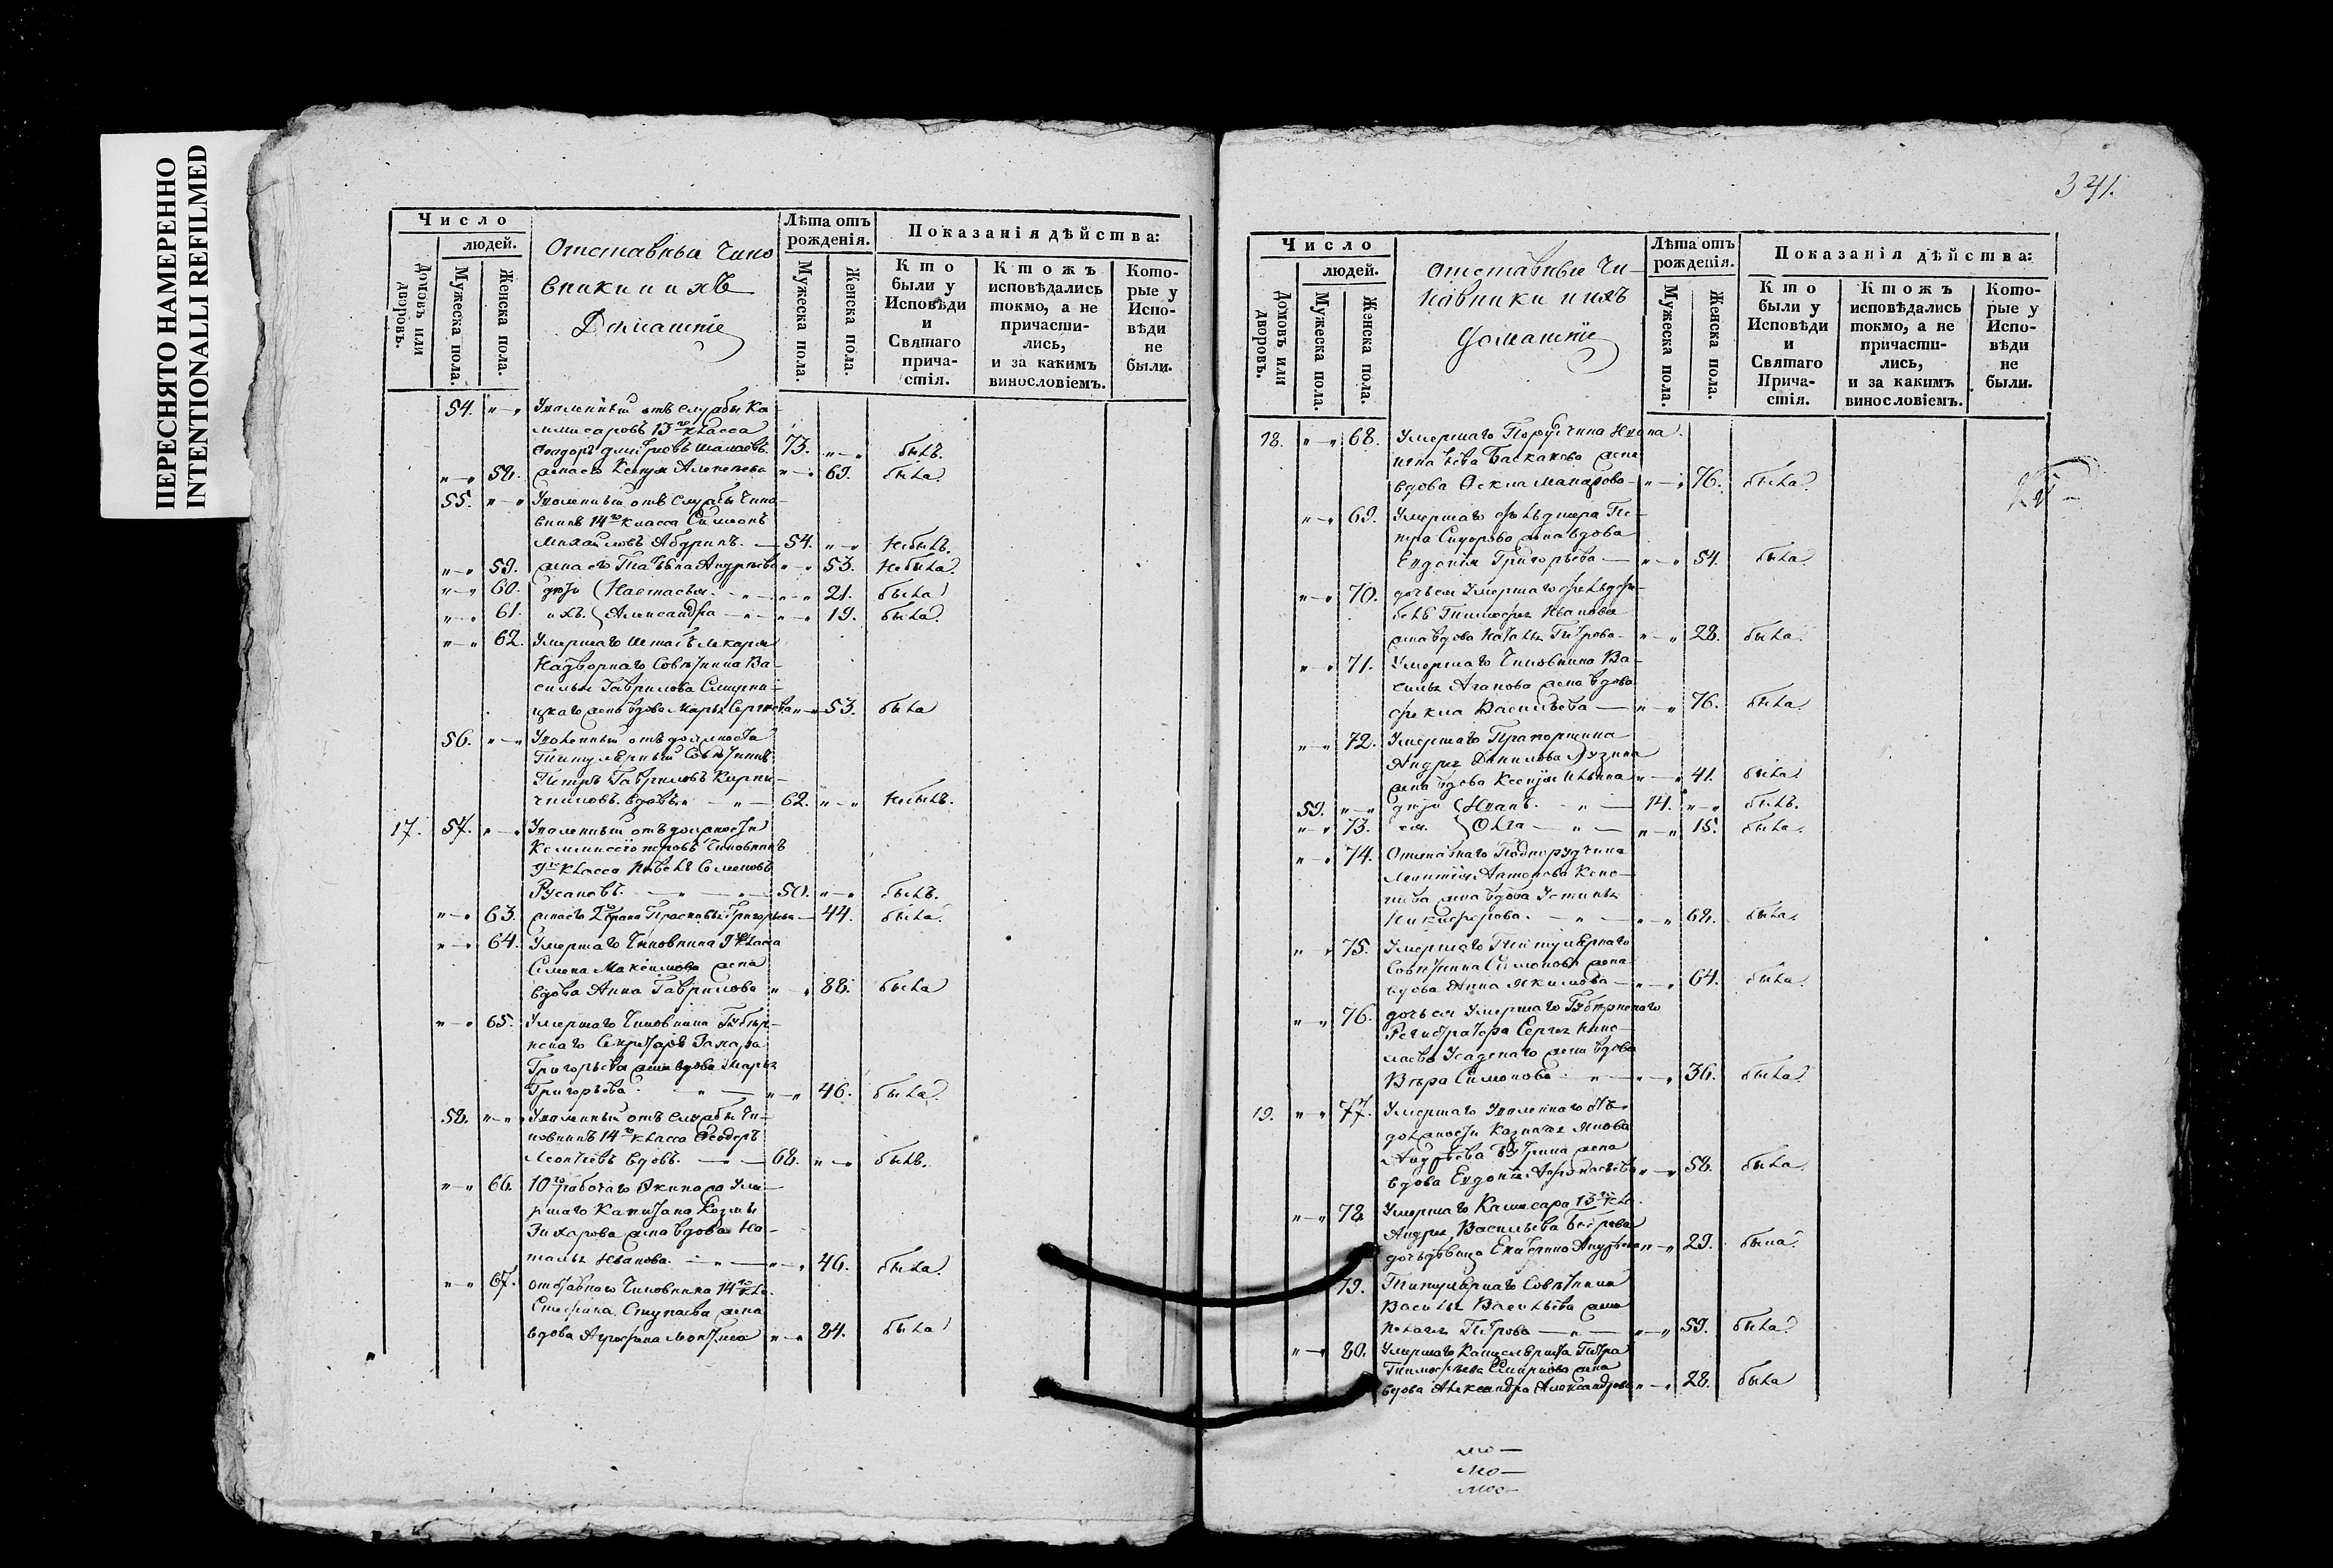 ПЕРЕСНЯТО НАМЕРЕННО
INTENTIONALLI REFILMED
Число
людей.
Домовъ или дворовъ.
Мужеска пола.
Женска пола.
Отставныи Чино
вники и ихъ
Домашніе
Лѣта отъ
рожденія.
Мужеска пола.
Женска пола.
Показанія дѣйства:
Кто
были у
Исповѣди
и
Святаго
прича-
стія.
Ктожъ
исповѣдались
токмо, а не
причасти-
лись,
и за какимъ
винословіемъ.
Кото-
рые у
Испо-
вѣди
не
были.
54. Уволенный отъ службы Ко-
мисаровъ 13го класса
Феодоръ Дмитріевъ 73. былъ.
58. жена его Ксенія Алексѣева 69. была.
55. Уволенный отъ службы Чино-
вникъ 14го класса Симеонъ
Михайловъ 54. Небылъ.
59. жена его Татьяна Андреева 53. Небыла.
60. дѣти Настасья 21. была
61. ихъ. Александра 19. была.
62. Умершаго Штабъ лекаря
Надворнаго Совѣтника Ва-
силья Гаврилова Смирни-
цкаго жена вдова Марья Сергѣева 53. была
56. Уволенный отъ должности
Титулярный Совѣтникъ
Петръ Гавриловъ Кирпи-
чниковъ вдовъ 62. Небылъ.
17. 57. Уволенный отъ должности
Коммисіонеровъ Чиновникъ
9го класса Павелъ Семеновъ
Русановъ. 50. былъ.
63. жена его 2го брака Прасковья Григорьева 44. была.
64. Умершаго Чиновника 9го класса
Симена Максимова жена
вдова Анна Гаврилова 88. была
65. Умершаго Чиновника Губер-
нскаго Секретаря Захара
Григорьева жена вдова Марья
Григорьева 46. была.
58. Уволенный отъ службы Чи-
новникъ 14го класса Феодоръ
Леонтьевъ вдовъ. 68. былъ.
66. 10го рабочаго Экипажа Уме-
ршаго Капитана Козмы
Захарова жена вдова На-
талья Иванова. 46. была.
67. отставнаго Чиновника 14го кла.
Стефана Ступаева жена
вдова Агрофена 84. была
341.
Число
людей.
Домовъ или дворовъ.
Мужеска пола.
Женска пола.
Отставные Чи-
новники и ихъ
домашніе
Лѣта отъ
рожденія.
Мужеска пола.
Женска пола.
Показанія дѣйства:
Кто
были у
Исповѣди
и
Святаго
Прича-
стія.
Ктожъ
исповѣдались
токмо, а не
причасти-
лись,
и за какимъ
винословіемъ.
Кото-
рые у
Испо-
вѣди
не
были.
18. 68. Умершаго Порутчика Ивана
Баскакова жена
вдова Фекла Макарова 76. была.
69. Умершаго фельдшера Пе-
тра Сидорова жена вдова
Евдокія Григорьева 54. была.
70. дочь ея Умершаго
Тимофея Иванова
жена вдова Наталья Петрова 28. была.
71. Умершаго Чиновника Ва-
силья Агапова жена вдова
Фекла Васильева 76. была.
72. Умершаго Прапорщика
Андрея Данилова Лузина
жена вдова Ксенія Ильина 41. была.
59. дѣти Иванъ. 14. былъ.
73. ея. Ольга 15. была.
74. Отставнаго Подпорутчика
Антонова
жена вдова Устинья
Никифорова. 68. была.
75. Умершаго Титулярнаго
Совѣтника Симонова жена
вдова Анна Якимова 64. была.
76. дочь ея Умершаго Губернскаго
Регистратора Сергея Нико-
лаева жена вдова
Вѣра Симонова 36. была.
19. 77. Умершаго Уволеннаго отъ
должности Казначея Якова
Андрѣева жена
вдова Евдокія Афонасьева 58. была.
78. Умершаго Комисара 13го кла.
Андрея Васильева
дочь дѣвица Екатерина Андрѣева 29. была.
79. Титулярнаго Совѣтника
Василья Васильева жена
Пелагея Петрова 59. была.
80. Умершаго Канцеляриста Петра
Тимофѣева Смирнова жена
вдова Александра Александрова 28. была
мо
мо